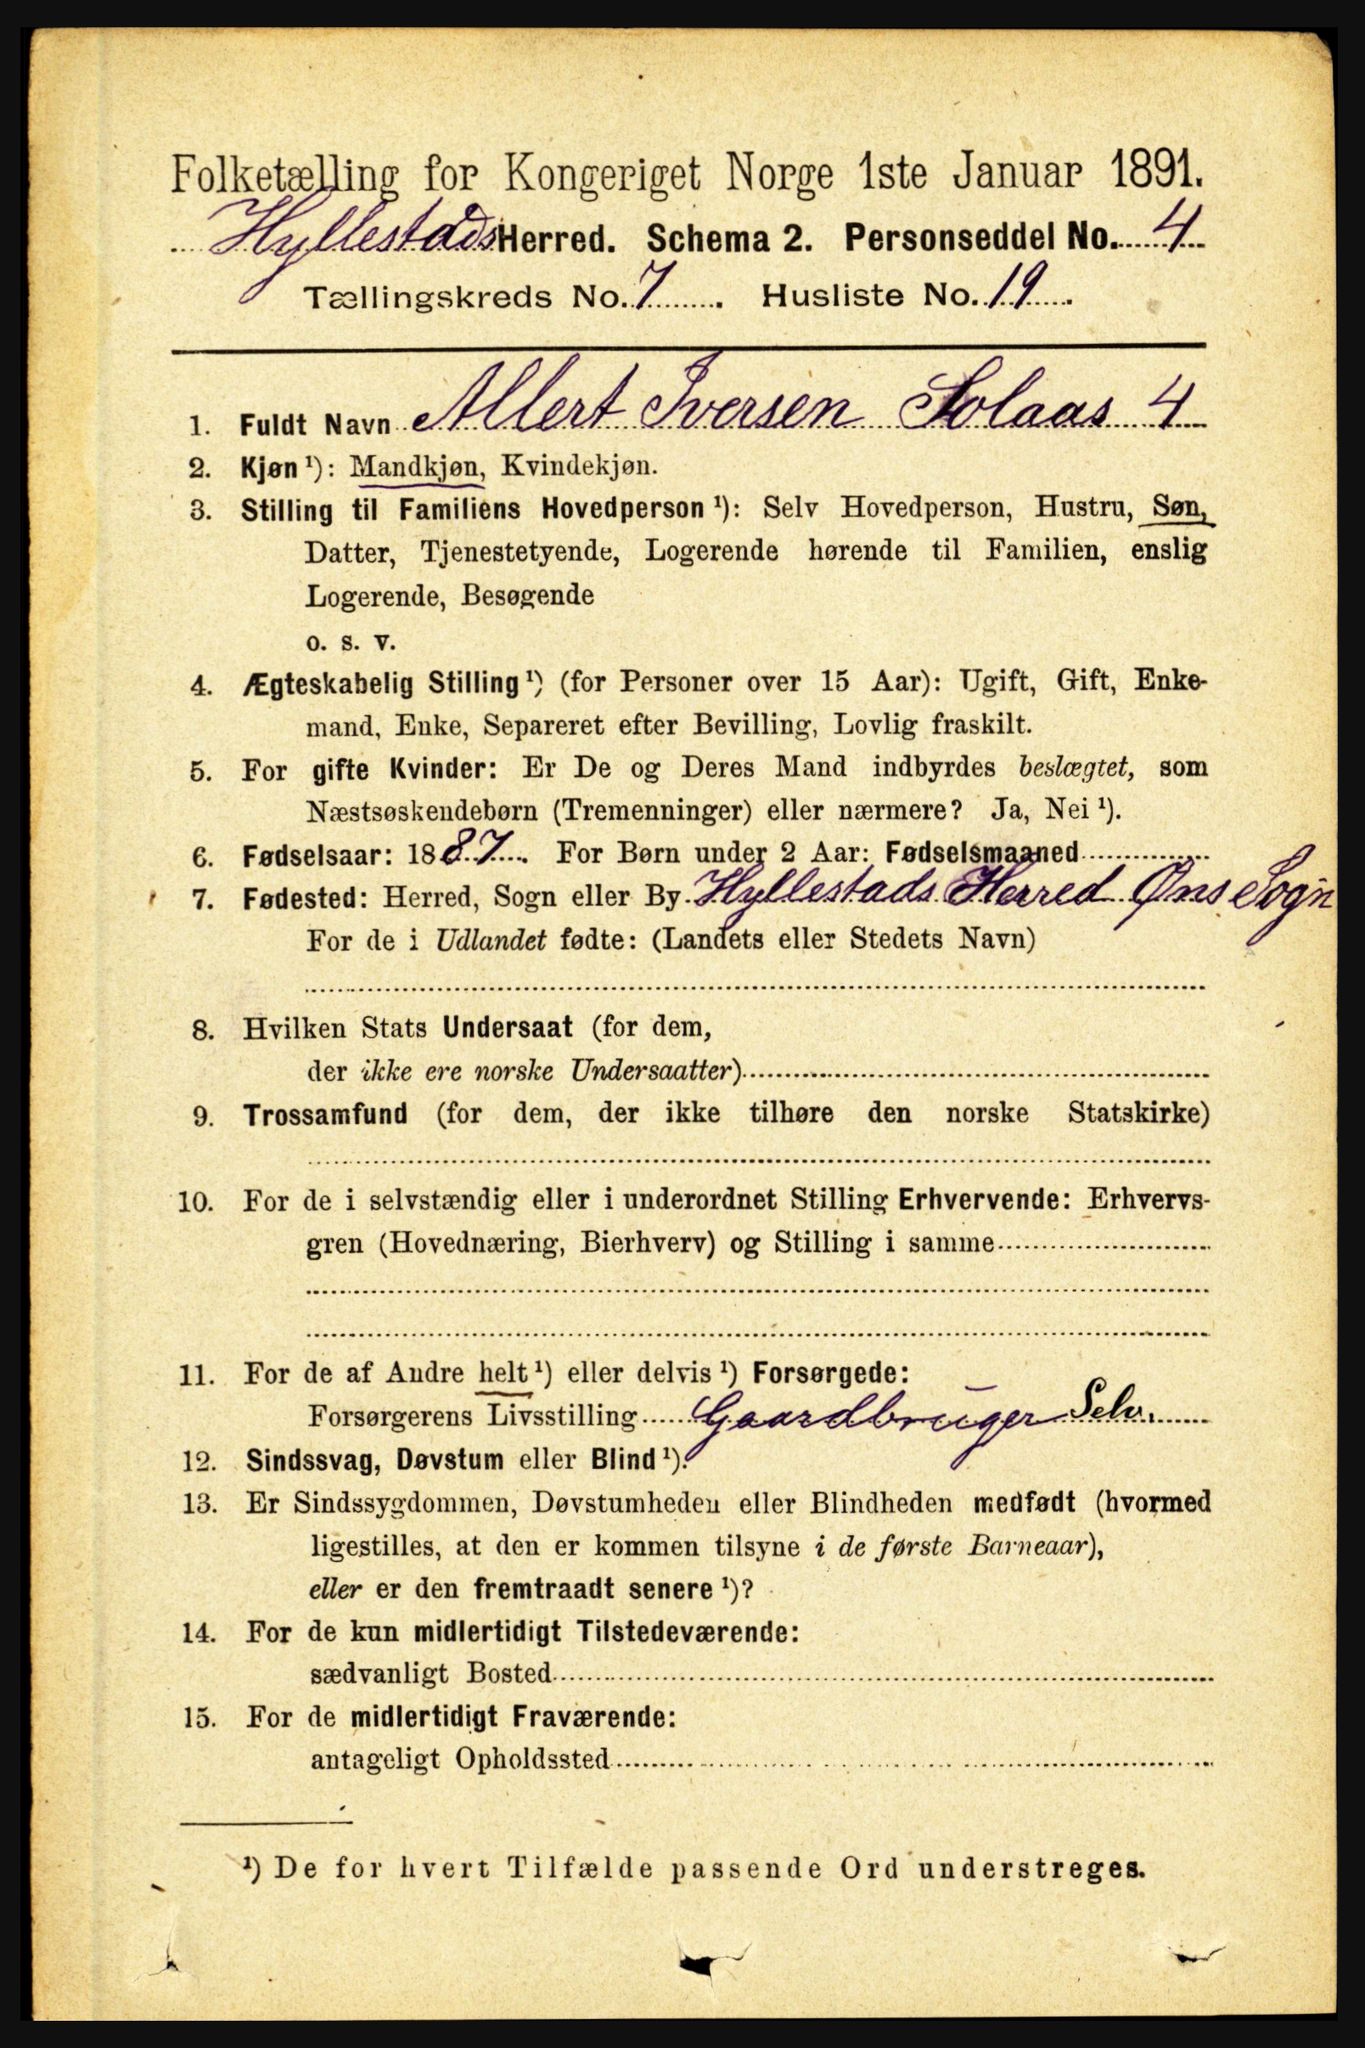 Folketælling for Kongeriget Norge 1ste Januar 1891.
Hyllestads Herred. Schema 2. Personseddel No. 4
Tællingskreds No. 7. Husliste No. 19
1. Fuldt Navn Allert Iversen Solaas 4
2. Kjøn ¹): Mandkjøn, Kvindekjøn.
3. Stilling til Familiens Hovedperson ¹): Selv Hovedperson, Hustru, Søn,
Datter, Tjenestetyende, Logerende hørende til Familien, enslig
Logerende, Besøgende
o. s. v.
4. Ægteskabelig Stilling ¹) (for Personer over 15 Aar): Ugift, Gift, Enke-
mand, Enke, Separeret efter Bevilling, Lovlig fraskilt.
5. For gifte Kvinder: Er De og Deres Mand indbyrdes beslægtet, som
Næstsøskendebørn (Tremenninger) eller nærmere? Ja, Nei ¹).
6. Fødselsaar: 1887. For Børn under 2 Aar: Fødselsmaaned
7. Fødested: Herred, Sogn eller By Hyllestads Herred Øns Sogn
For de i Udlandet fødte: (Landets eller Stedets Navn)
8. Hvilken Stats Undersaat (for dem,
der ikke ere norske Undersaatter)
9. Trossamfund (for dem, der ikke tilhøre den norske Statskirke)
10. For de i selvstændig eller i underordnet Stilling Erhvervende: Erhvervs-
gren (Hovednæring, Bierhverv) og Stilling i samme
11. For de af Andre helt ¹) eller delvis ¹) Forsørgede:
Forsørgerens Livsstilling Gaardbruger Selv.
12. Sindssvag, Døvstum eller Blind ¹).
13. Er Sindssygdommen, Døvstumheden eller Blindheden medfødt (hvormed
ligestilles, at den er kommen tilsyne i de første Barneaar),
eller er den fremtraadt senere ¹)?
14. For de kun midlertidigt Tilstedeværende:
sædvanligt Bosted
15. For de midlertidigt Fraværende:
antageligt Opholdssted
¹) De for hvert Tilfælde passende Ord understreges.